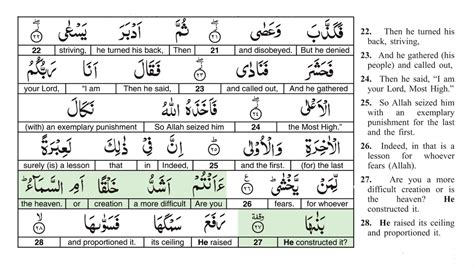 فَكَذَّبَ وَعَصٰى ۖ ٢١ ثُمَّ اَدْبَرَ يَسْعٰى ۖ ٢٢
22 striving, he turned his back, Then 21 and disobeyed. But he denied
فَحَشَرَ فَنَادٰى ۖ ٢٣ فَقَالَ اَنَا رَبُّكُمُ
your Lord, "I am Then he said, 23 and called out, And he gathered
الْاَعْلٰى ۖ ٢٤ فَاَخَذَهُ اللّٰهُ نَكَالَ
(with) an exemplary punishment So Allah seized him 24 the Most High."
الْاٰخِرَةِ وَالْاُوْلٰى ۗ ٢٥ اِنَّ فِيْ ذٰلِكَ لَعِبْرَةً
surely (is) a lesson that in Indeed, 25 and the first. (for) the last
لِّمَنْ يَّخْشٰى ۗ ٢٦ ءَاَنْتُمْ اَشَدُّ خَلْقًا اَمِ السَّمَآءُ ۗ
the heaven. or creation a more difficult Are you 26 fears. for whoever
بَنٰىهَا ۗ ٢٧ رَفَعَ سَمْكَهَا فَسَوّٰىهَا ۙ ٢٨
28 and proportioned it. its ceiling He raised 27 He constructed it?
22. Then he turned his
back, striving,
23. And he gathered (his
people) and called out,
24. Then he said, "I am
your Lord, Most High."
25. So Allah seized him
with an exemplary
punishment for the last
and the first.
26. Indeed, in that is a
lesson for whoever
fears (Allah).
27. Are you a more
difficult creation or is
the heaven? He
constructed it.
28. He raised its ceiling
and proportioned it.